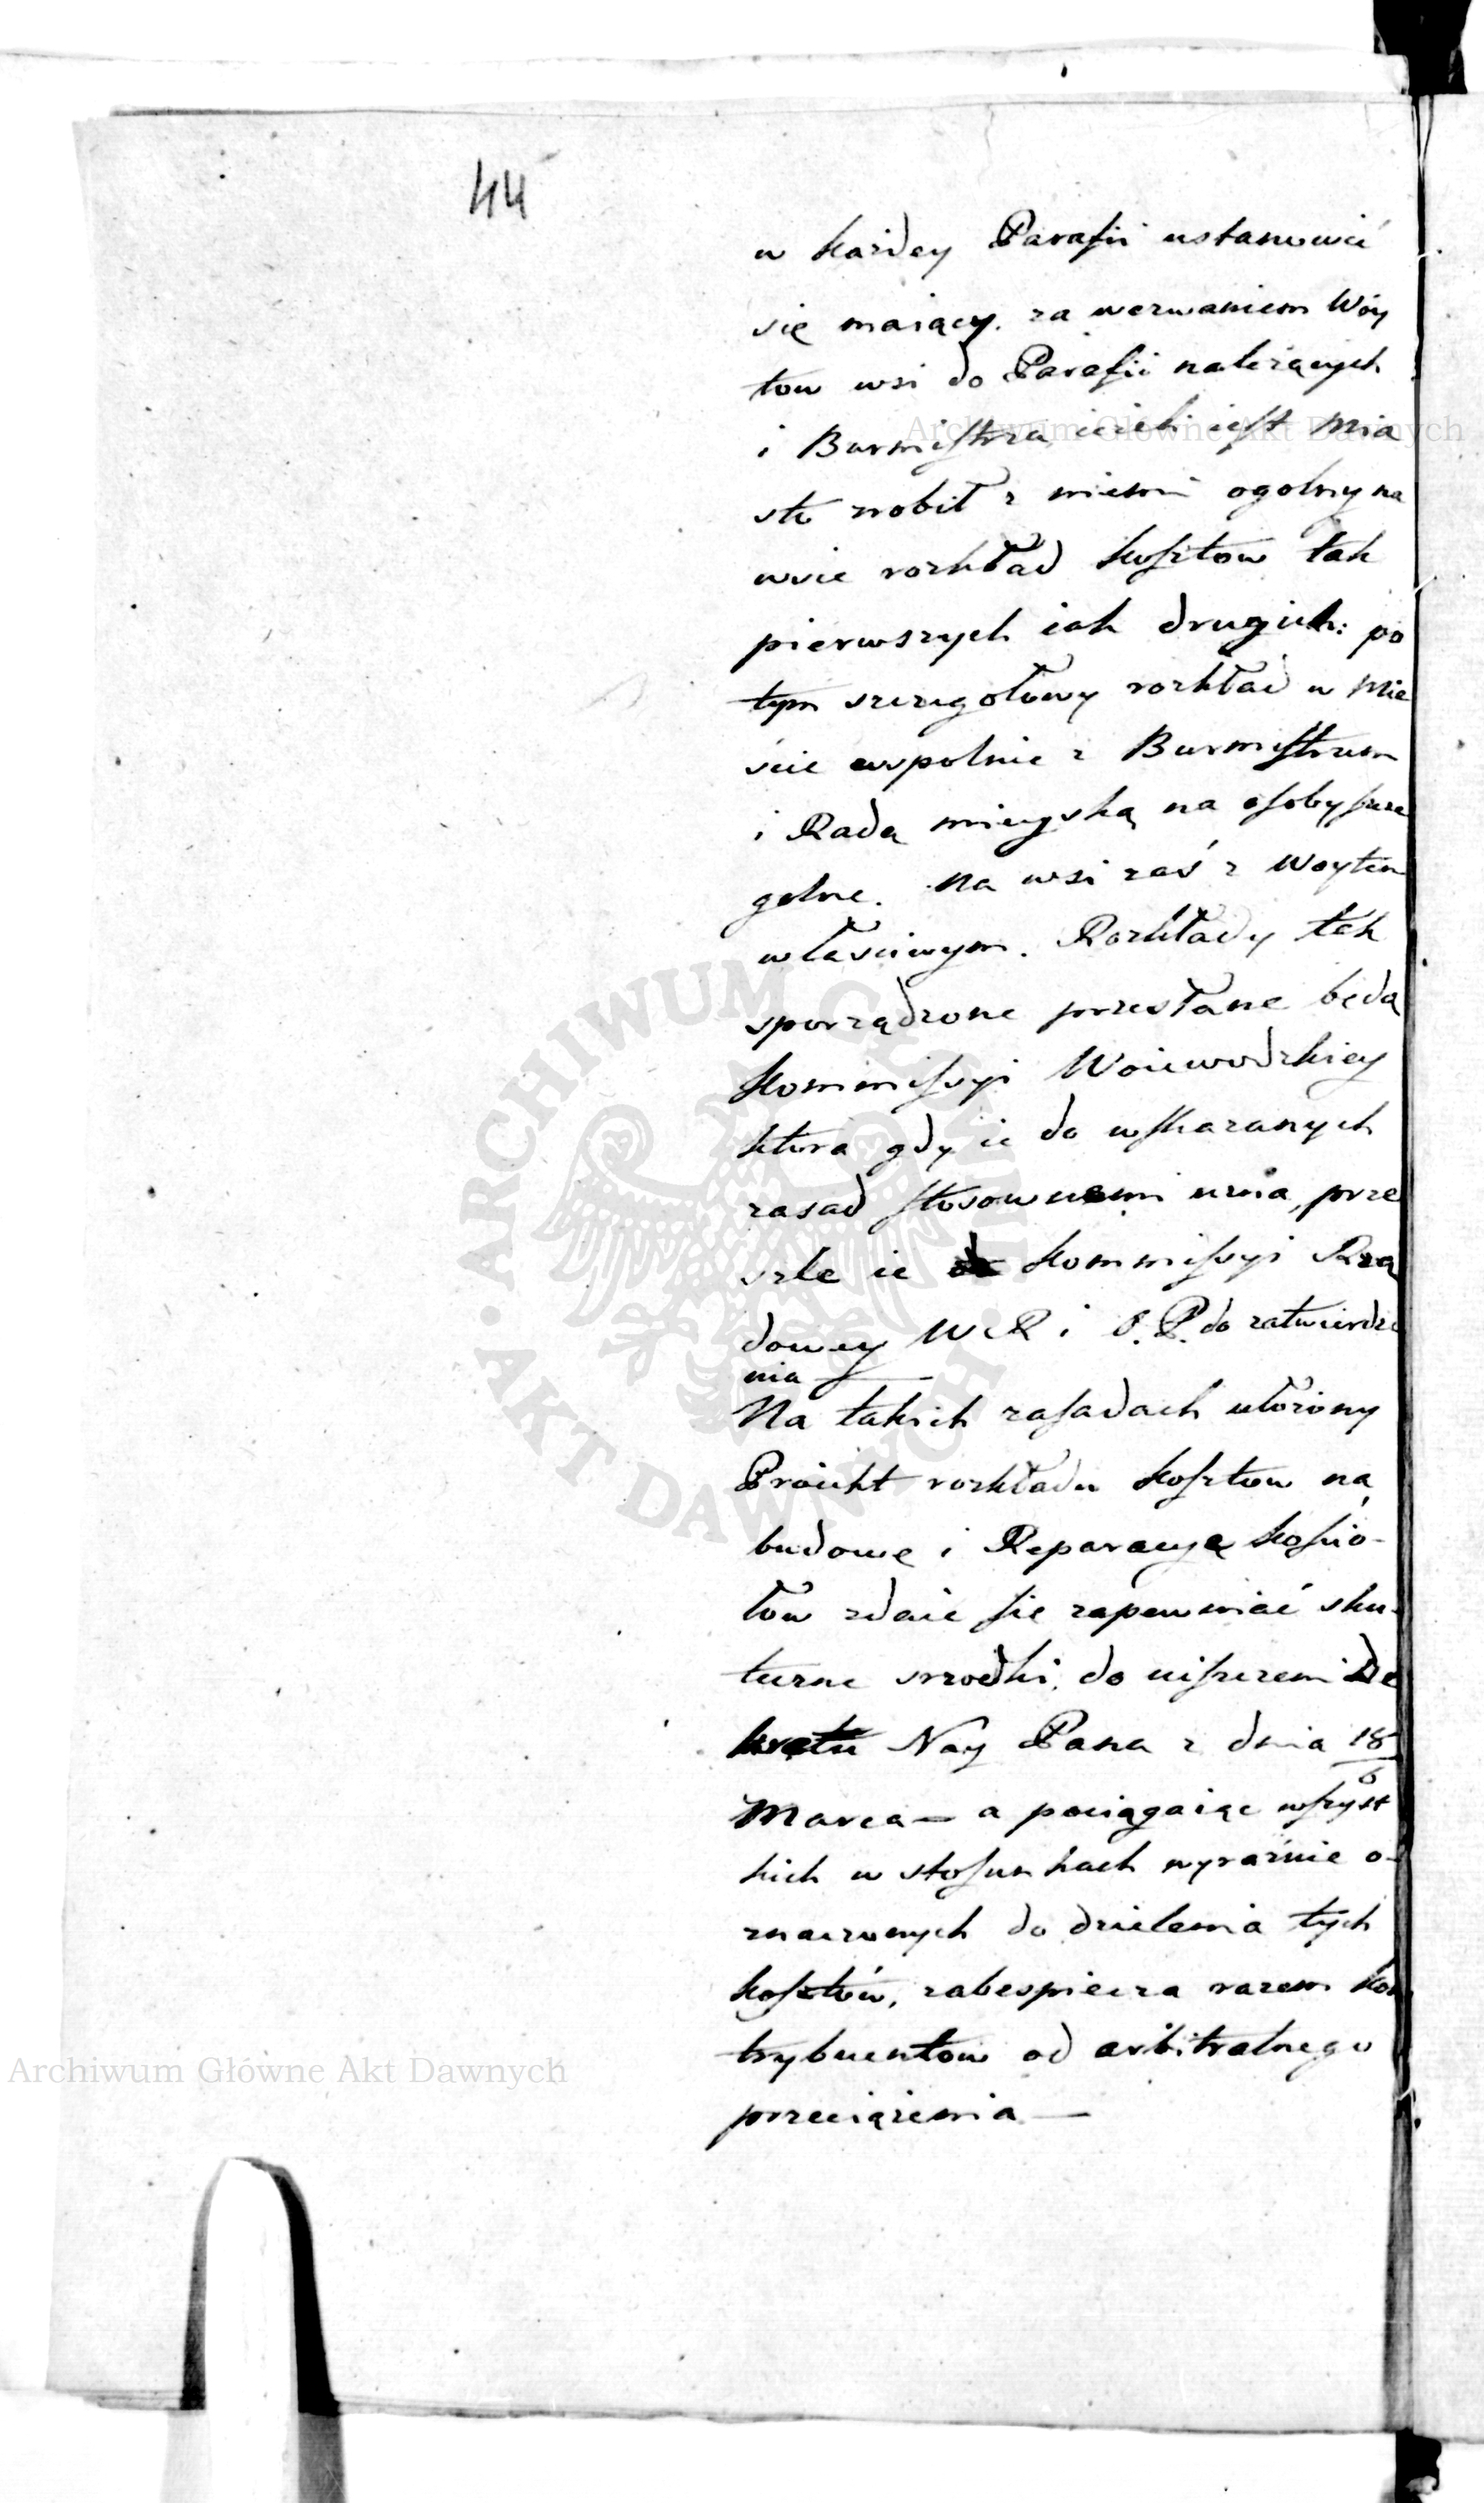 44
w każdey Parafii ustanowić
się maiący. za wezwaniem Wóy
tow wsi do Parafii należących
i Burmistrza, ieżeli iest Mia
sto zrobił z niemi ogolny na
wsie rozkład kosztow tak
pierwszych iak drugich: po
tym szczegołowy rozkład w Mie
ście wspolnie z Burmistrzem
i Radą mieyską na osoby szcze
golne. Na wsi zaś z Woytem
właściwym. Rozkłady tak
sporządzone przesłane będą
Kommissyi Woiewodzkiey
ktora gdy ie do wskazanych
zasad stosownemi uzna, prze
szle ie Kommissyi Rzą
dowey W.R i O.P. do zatwierdze
nia
Na takich zasadach ułożony
Proiekt rozkładu kosztow na
budowę i Reparacyą kościo-
łow zdaie się zapewniać sku-
teczne srzodki, do uiszczenia De
kretu Nay Pana z dnia 18/6
Marca — a pociągaiąc wszyst
kich w stosunkach wyraźnie o-
znaczonych do dzielenia tych
kosztów, zabespiecza razem kon
trybuentow od arbitralnego
przeciążenia —
Archiwum Główne Akt Dawnych
Archiwum Główne Akt Dawnych
ARCHIWUM GŁÓWNE AKT DAWNYCH